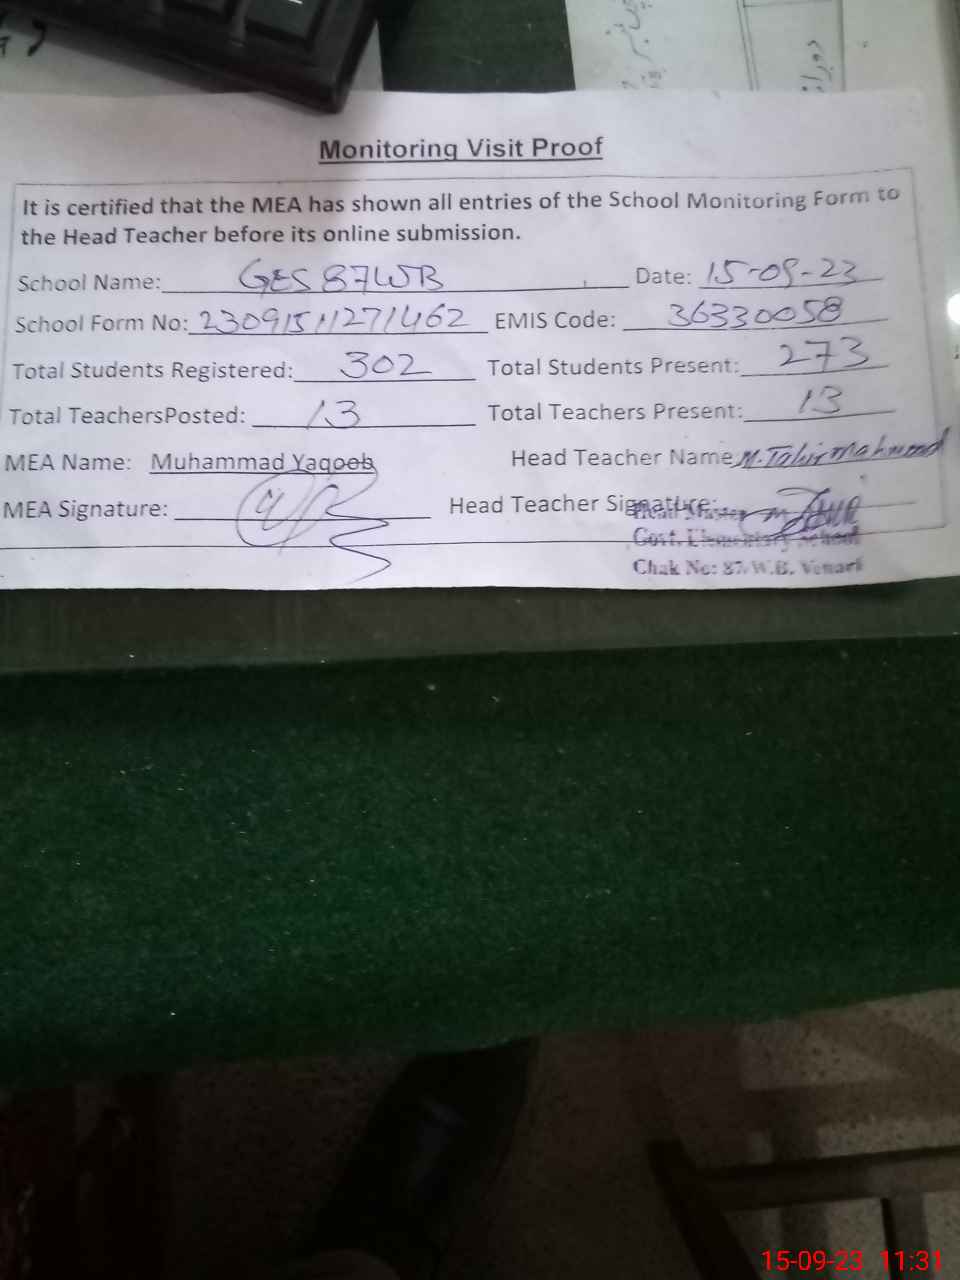 Monitoring Visit Proof
It is certified that the MEA has shown all entries of the School Monitoring Form to
the Head Teacher before its online submission.
School Name: GES 87WB Date: 15-09-23
School Form No: 23091511271462 EMIS Code: 36330058
Total Students Registered: 302 Total Students Present: 273
Total TeachersPosted: 13 Total Teachers Present: 13
MEA Name: Muhammad Yaqoob Head Teacher Name M. Tahir Mahmood
MEA Signature: Head Teacher Signature:
Govt. Elementary School
Chak No: 87/W.B. Vehari
15-09-23 11:31